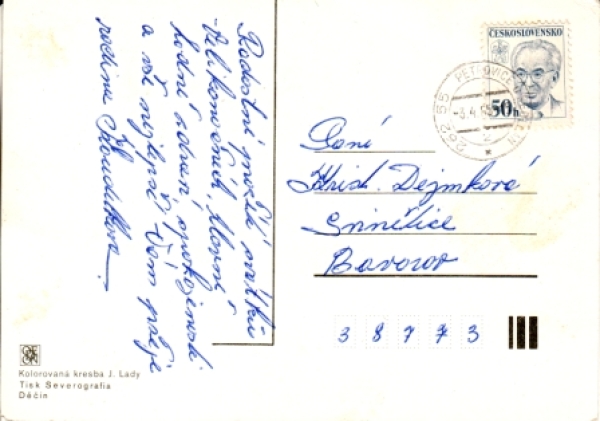 Radostné prožití svátků
Velikonočních, hlavně
hodně zdraví, spokojenosti
a vše nejlepší Vám přeje
rodina
ČESKOSLOVENSKO
50h
262 55 PETROVICE
-3.4.
Paní
Krist. Dejmková
Bavorov
38773
Kolorovaná kresba J. Lady
Tisk Severografia
Děčín